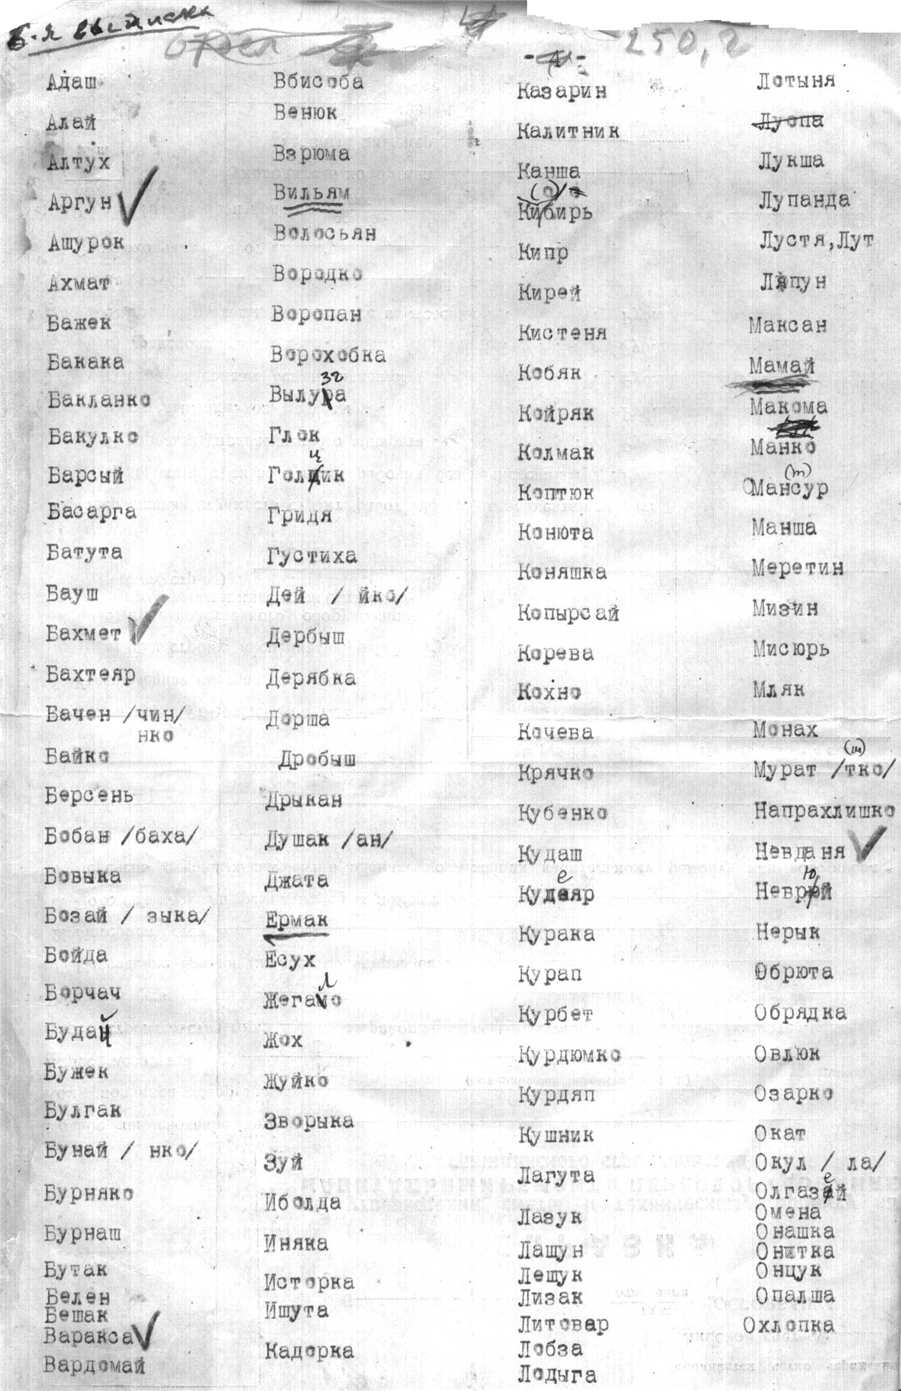 5-я выписка
250,2
Адаш
Алай
Алтух
Аргун
Ащурок
Ахмат
Бажек
Бакака
Бакланко
Бакулко
Барсый
Басарга
Батута
Бауш
Бахмет
Бахтеяр
Бачен /чин/
нко
Байко
Берсень
Бобан /баха/
Бовыка
Бозай / зыка/
Бойда
Борчач
Будай
Бужек
Булгак
Бунай / нко/
Бурняко
Бурнаш
Бутак
Белен
Бешак
Варакса
Вардомай
Вбисоба
Венюк
Взрюма
Вильям
Волосьян
Вородко
Воропан
Ворохобка
зг
Вылура
Глок
ц
Голщик
Гридя
Густиха
Дей / йко/
Дербыш
Дерябка
Дорша
Дробыш
Дрыкан
Душак /ан/
Джата
Ермак
Есух
л
Жегамо
Жох
Жуйко
Зворыка
Зуй
Иболда
Иняка
Исторка
Ишута
Кадорка
Казарин
Калитник
Канша
(о)
Кибирь
Кипр
Кирей
Кистеня
Кобяк
Койряк
Колмак
Коптюк
Конюта
Коняшка
Копырсай
Корева
Кохно
Кочева
Крячко
Кубенко
Кудаш
е
Кудояр
Курака
Курап
Курбет
Курдюмко
Курдяп
Кушник
Лагута
Лазук
Лащун
Лещук
Лизак
Литовар
Лобза
Лодыга
Лотыня
Луопа
Лукша
Лупанда
Лустя,Лут
Ляпун
Максан
Мамай
Макома
Манко
(т)
Мансур
Манша
Меретин
Мизин
Мисюрь
Мляк
Монах
(ш)
Мурат /тко/
Напрахлишко
Невданя
ю
Неврой
Нерык
Обрюта
Обрядка
Овлюк
Озарко
Окат
Окул / ла/
Олгазей
Омена
Онашка
Онитка
Онцук
Опалша
Охлопка